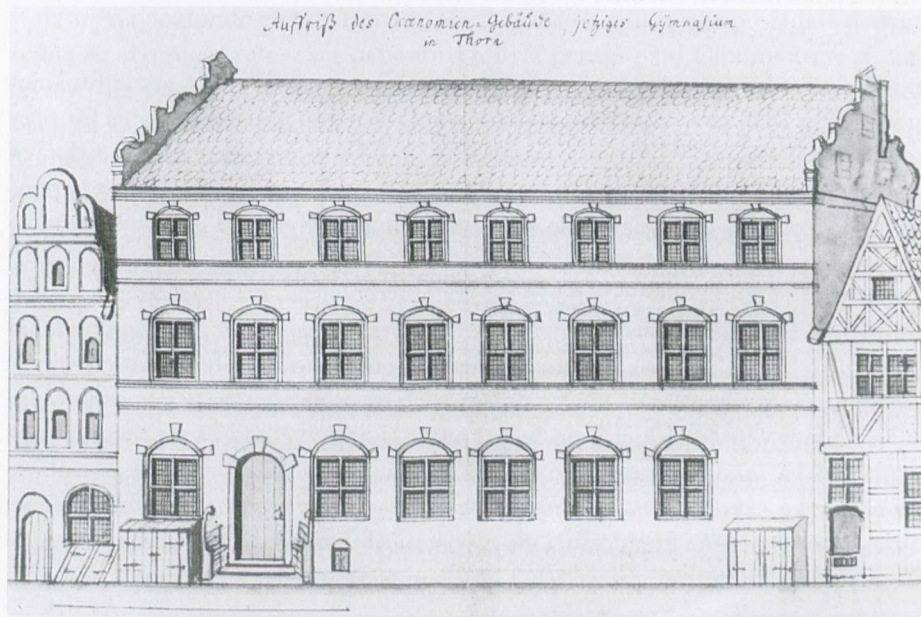 Auffriß des Oeconomien-Gebäude jetziges Gymnasium
in Thorn